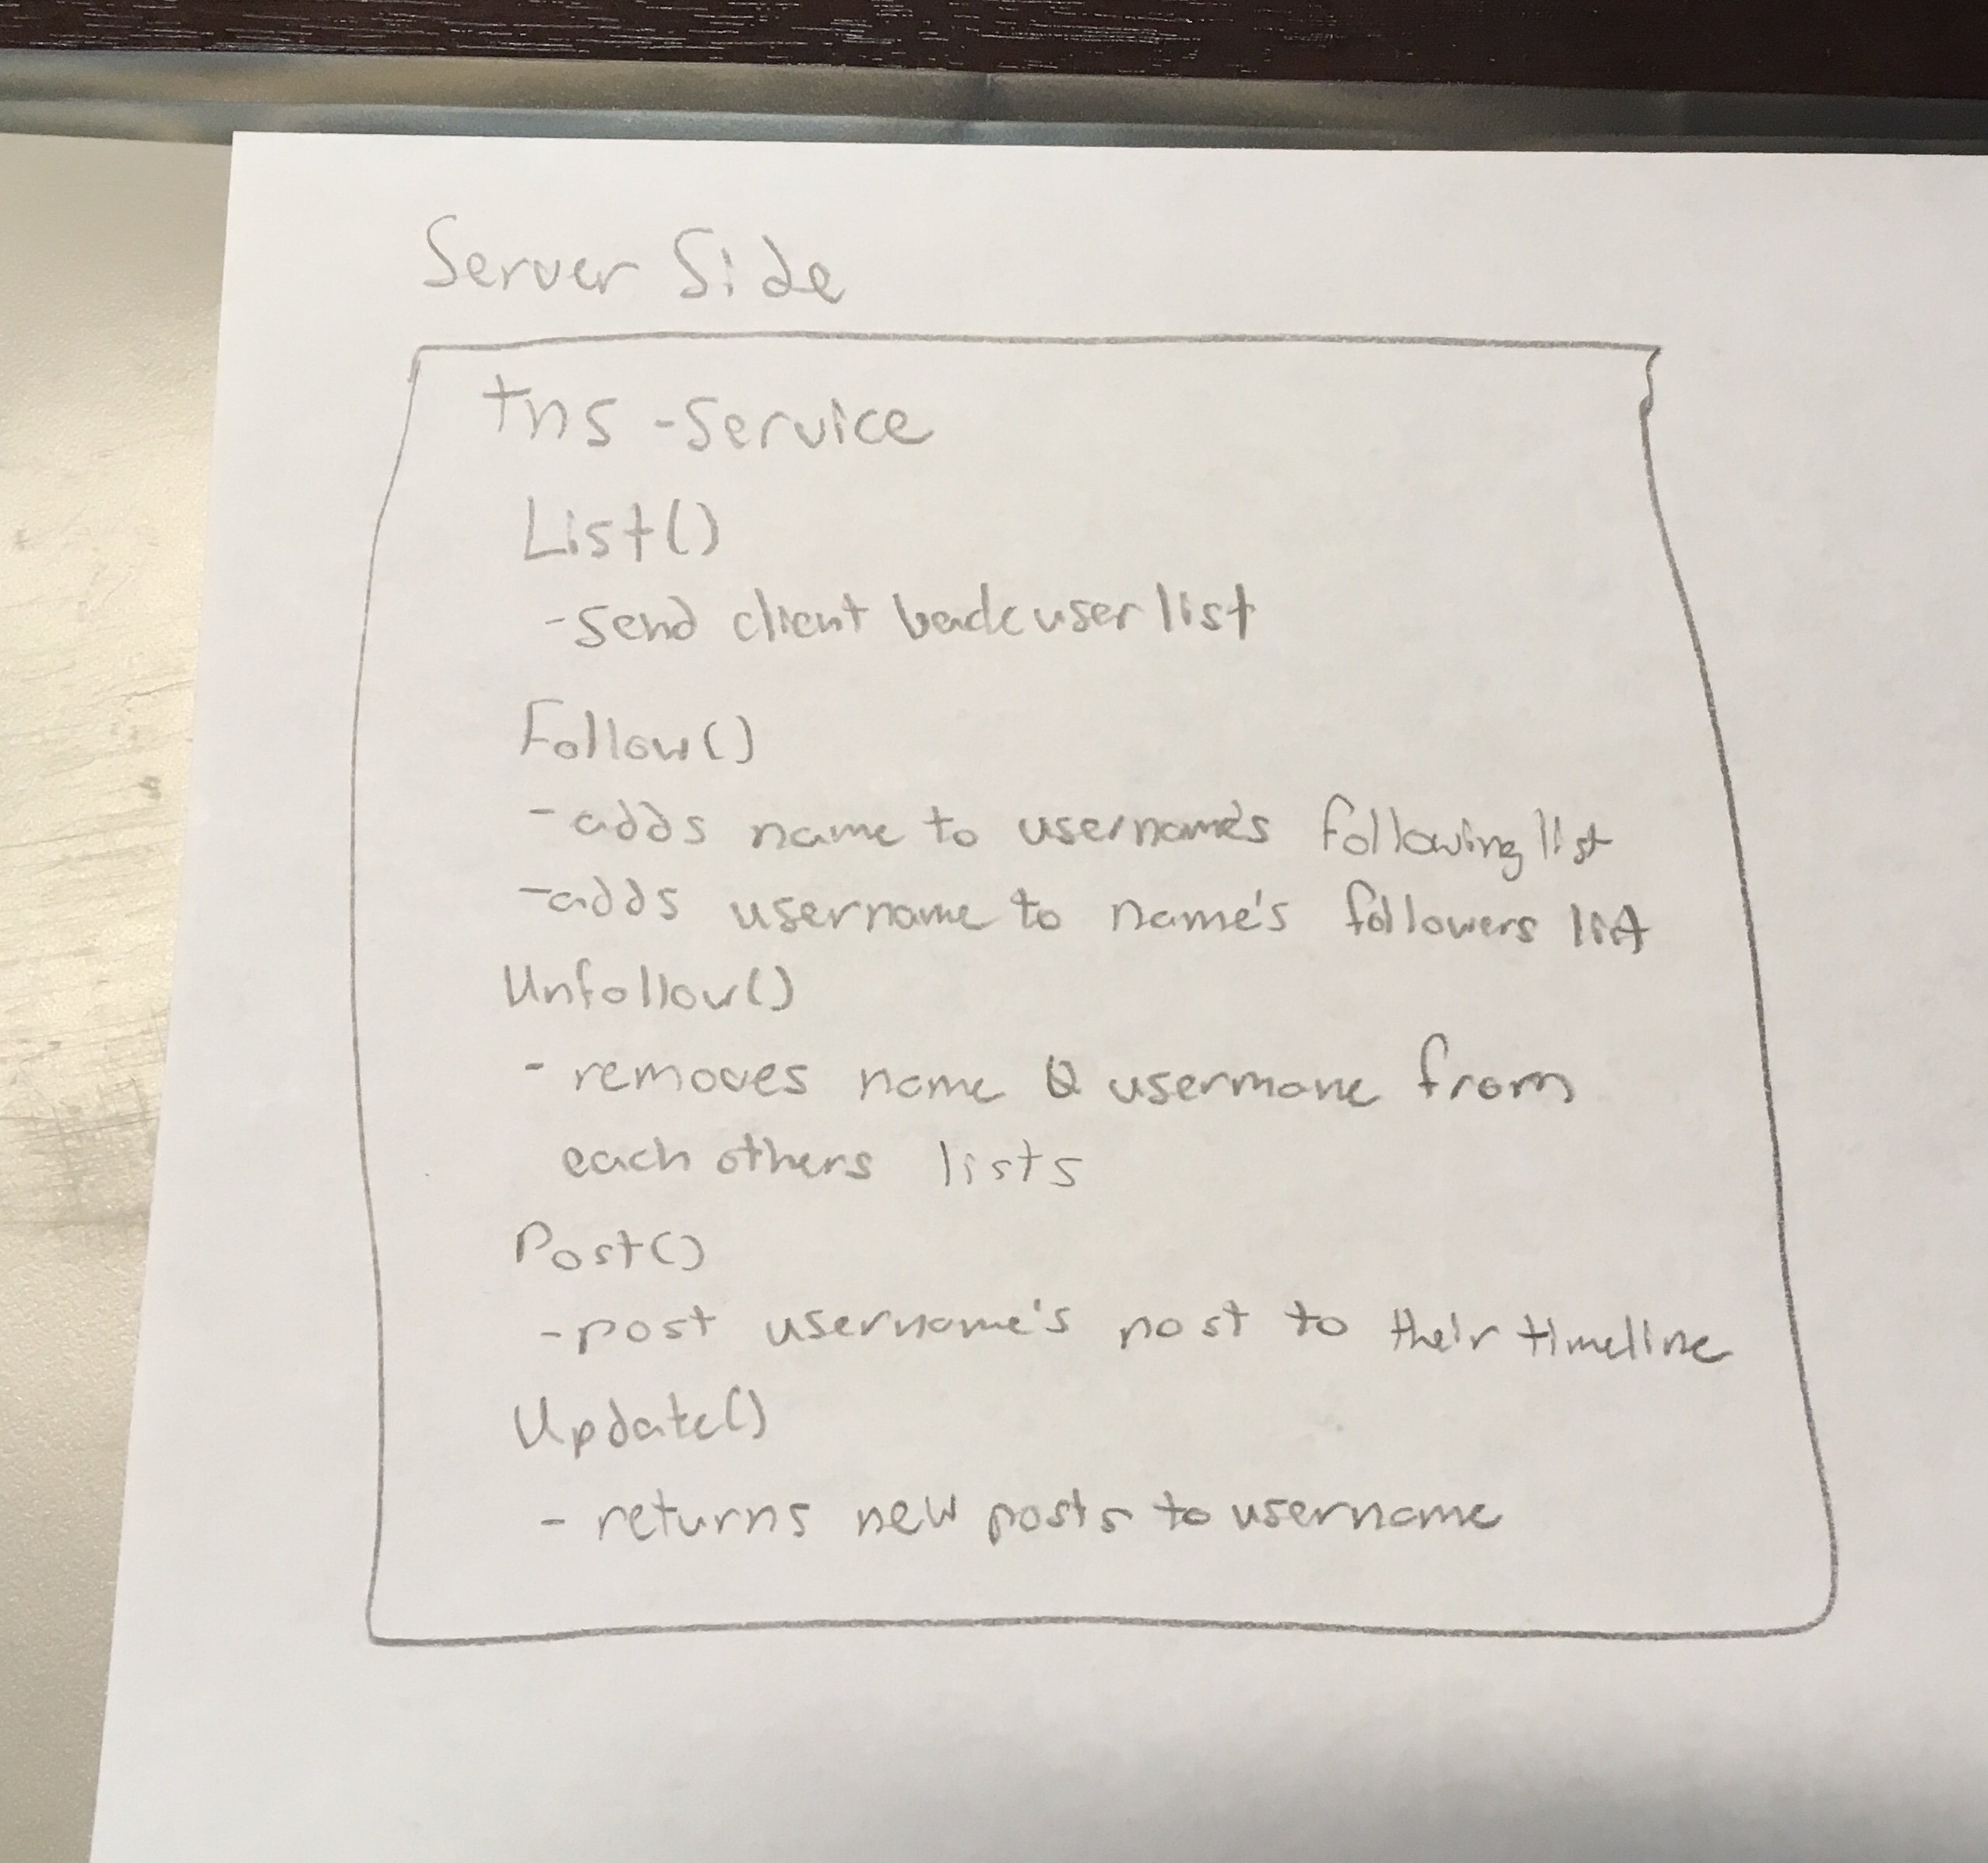 Server Side
tns - Service
List()
- Send client back user list
Follow()
- adds name to username's following list
- adds username to name's followers list
Unfollow()
- removes name & username from
each others lists
Post()
- post username's post to their timeline
Update()
- returns new posts to username